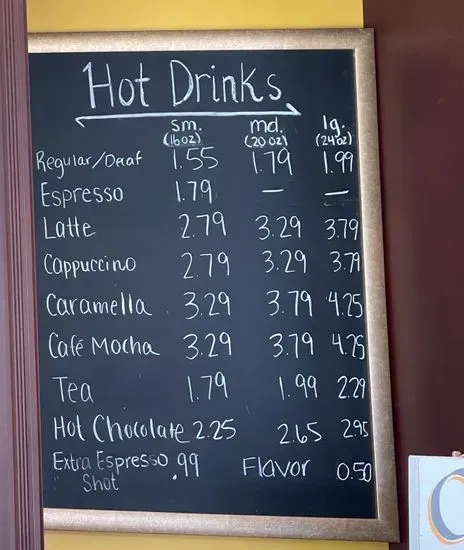 Hot Drinks
sm. md. lg.
(16oz) (20oz) (24oz)
Regular/Decaf 1.55 1.79 1.99
Espresso 1.79 — —
Latte 2.79 3.29 3.79
Cappuccino 2.79 3.29 3.79
Caramella 3.29 3.79 4.25
Café Mocha 3.29 3.79 4.25
Tea 1.79 1.99 2.29
Hot Chocolate 2.25 2.65 2.95
Extra Espresso .99 Flavor 0.50
Shot